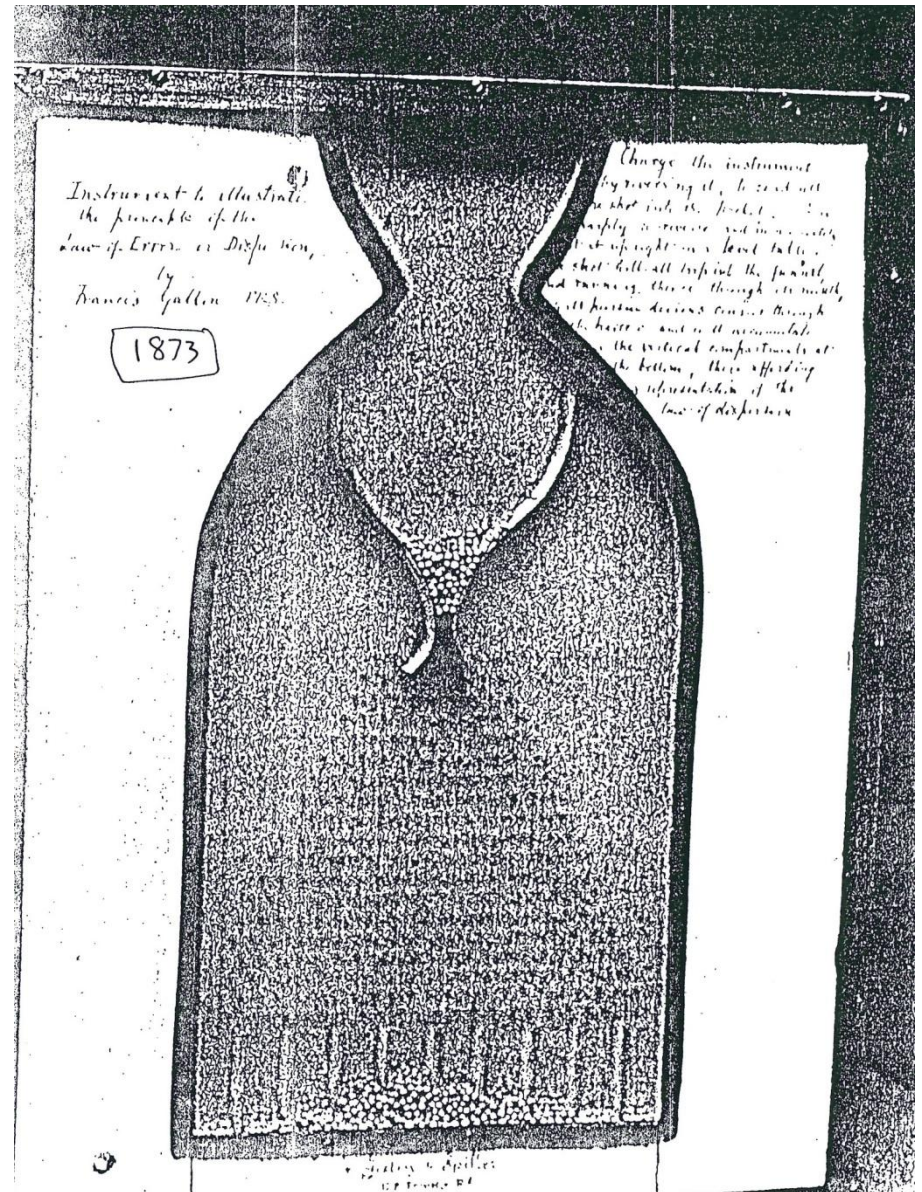 Instrument to illustrate
the principle of the
Law of Error or Dispersion,
by
Francis Galton F.R.S.
1873
Charge the instrument
by reversing it, to send all
shot into the pocket.
sharply reverse and immediately
set upright on a level table.
shot will all drop into the funnel,
and running thence through its mouth,
will pursue devious courses through
the and will accumulate
in the vertical compartments at
the bottom, there affording
a representation of the
law of dispersion